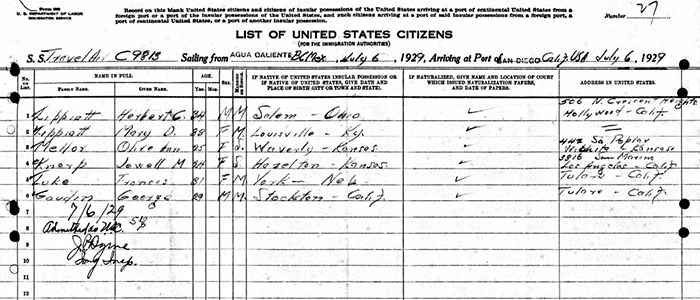 Form 630
U. S. DEPARTMENT OF LABOR
IMMIGRATION SERVICE
Record on this blank United States citizens and citizens of insular possessions of the United States arriving at a port of continental United States from a
foreign port or a port of the insular possessions of the United States, and such citizens arriving at a port of said insular possessions from a foreign port, a
port of continental United States, or a port of another insular possession.
Number 27
LIST OF UNITED STATES CITIZENS
(FOR THE IMMIGRATION AUTHORITIES)
S. S. TravelAir C9813 Sailing from AGUA CALIENTE BC Mex, July 6, 1929, Arriving at Port of SAN DIEGO Calif. USA July 6, 1929
No. ON LIST NAME IN FULL AGE SEX IF NATIVE OF UNITED STATES INSULAR POSSESSION OR IF NATIVE OF UNITED STATES, GIVE DATE AND PLACE OF BIRTH (CITY OR TOWN AND STATE). IF NATURALIZED, GIVE NAME AND LOCATION OF COURT WHICH ISSUED NATURALIZATION PAPERS, AND DATE OF PAPERS. ADDRESS IN UNITED STATES
FAMILY NAME GIVEN NAME YRS. MOS.
506 N. Crescent Heights
1 Lippiatt Herbert C. 34 M M Salem - Ohio ✓ Hollywood - Calif.
2 Lippiatt Mary D. 28 F M. Louisville - Ky. ✓ =
3 Mellor Olive Ann 25 F S. Waverly - Kansas ✓ 442 So. Poplar Wichita Kansas
4 Knerp Jewell M. 24 F S Hazelton - Kansas ✓ 3816 San Marino Los Angeles - Calif
5 Luke Frances 31 F M York - Neb ✓ Tulare - Calif.
6 Gaudin George 29 M M. Stockton - Calif. ✓ Tulare - Calif.
7 7/6/29
8 Admitted as U.S.C.
9
10 Img Insp.
11
12